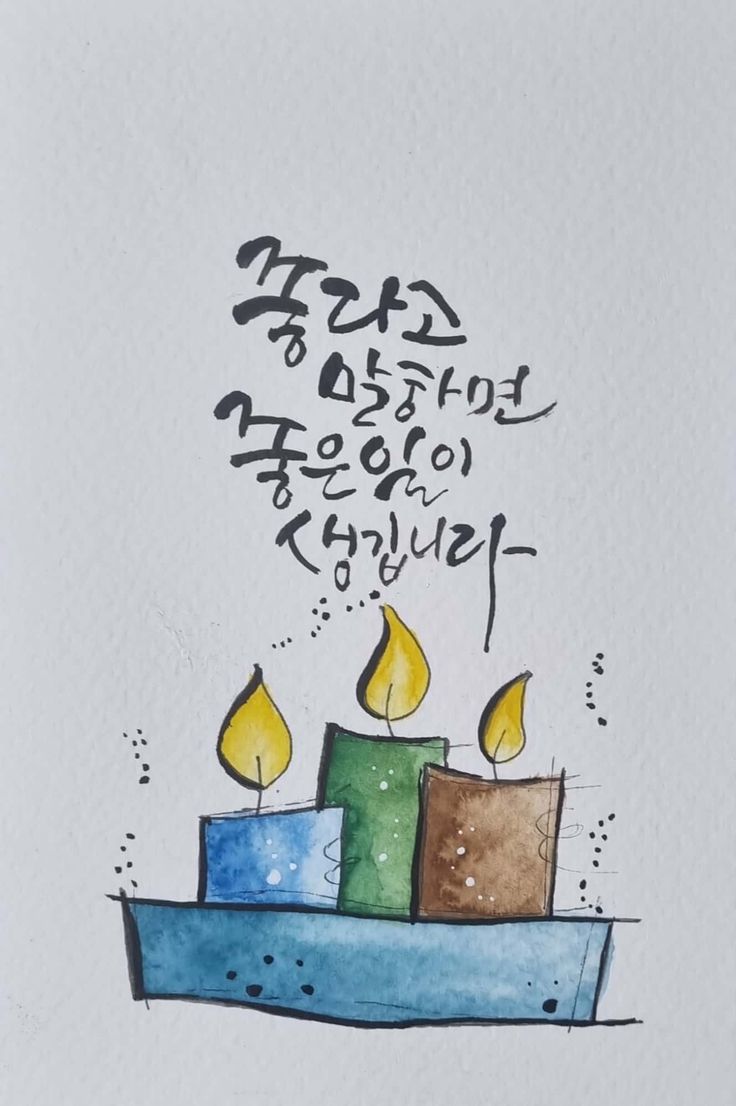 좋다고
말하면
좋은 일이
생깁니다